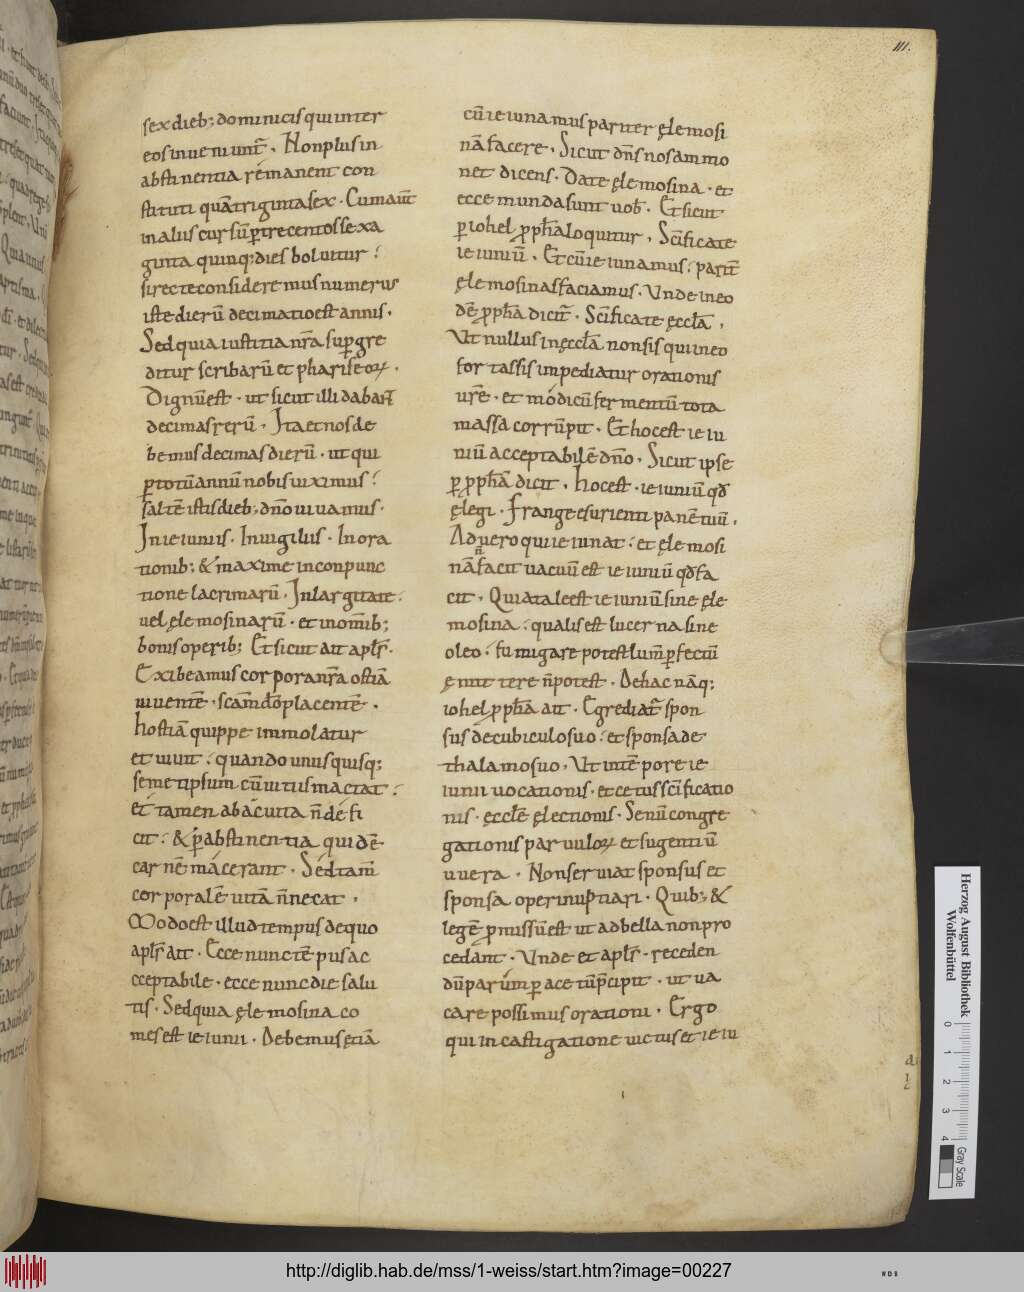 111.
sexdieb; dominicis qui inter
eos inueniunt̄. Non plus in
abstinentia rémanent con
stituti quā triginta sex. Cum aūt
in alius cursū ꝑ trecentos sexa
ginta quinq; dies boluitur :
si recte consideremus numerus
iste dierū decimatio est annis.
Sed quia iustitia nr̄a supergre
ditur scribarū et phariseoꝝ.
Dignū est. ut sicut illi dabant̄
decimas rerū. Ita et nos de
bemus decimas dierū. ut qui
ꝑ totū annū nobis uiximus :
saltē istis dieb; dn̄o uiuamus.
In ieiuniis. In uigiliis. In ora
tionib; & maxime in conpunc
tione lacrimarū. In largitate.
uel ęlemosinarū. et in om̄ib;
bonis operib; Et sicut ait apl̄s.
Exibeamus corpora nr̄a ostiā
uiuentē. sc̄am dō placentē.
hostiā quippe immolatur
et uiuit : quando unus quisq;
semetipsum cū uitiis mactat :
et tamen ab ac uita n̄ defi
cit : & ꝑ abstinentia quidē
carnē macerant. Sed tam̄
corporalē uitā n̄ necat.
Modo est illud tempus de quo
apl̄s ait. Ecce nunc tēpus ac
cceptabile. ecce nunc die salu
tis. Sed quia ęlemosina co
mes est ieiunii. Debemus ętiā
cū ieiunamus pariter ęlemosi
nā facere. Sicut dn̄s nos ammo
net dicens. Date ęlemosina. et
ecce munda sunt uob̄. Et sicut
ꝑ iohel ꝓph̄a loquitur. Sc̄ificate
ieiuniū. Et cū ieiunamus : parit̄
ęlemosinas faciamus. Unde in eo
dē ꝓph̄a dicit̄. Sc̄ificate ęccl̄a.
Ut nullus in ęccl̄a non sis qui in eo
fortassis impediatur orationis
ur̄e. et modicū fermentū tota
massa corrūpit. Et hoc est ieiu
niū acceptabilē dn̄o. Sicut ipse
ꝑ ꝓph̄a dicit. hoc est. ieiuniū qđ
ęlegi. Frange esurienti panē tuū.
Ad uero qui ieiunat : et ęlemosi
nā n̄ facit uacuū est ieiuniū qđ fa
cit. Quia tale est ieiuniū sine ęle
mosina : qualis est lucerna sine
oleo : fumigare potest lum̄ ꝑfectū
ęmittere n̄ potest. De hac nāq;
iohel ꝓph̄a ait. Egrediat̄ spon
sus de cubiculo suo : et sponsa de
thalamo suo. Ut in tēpore ie
iunii uocationis. et cetus sc̄ificatio
nis. ęccl̄ę ęlectionis. Senū congre
gationis paruuloꝝ et sugentiū
uuera. Non seruiat sponsus et
sponsa operi nuptiari. Quib; &
legē ꝓmissū est ut ad bella non pro
cedant. Unde et apl̄s. receden
dū parūm per ac te ūp̄cipit. ut ua
care possimus orationi. Ergo
qui in castigatione uictus et ieiu
Herzog August Bibliothek
Wolfenbüttel
0 1 2 3 4
Gray Scale
http://diglib.hab.de/mss/1-weiss/start.htm?image=00227